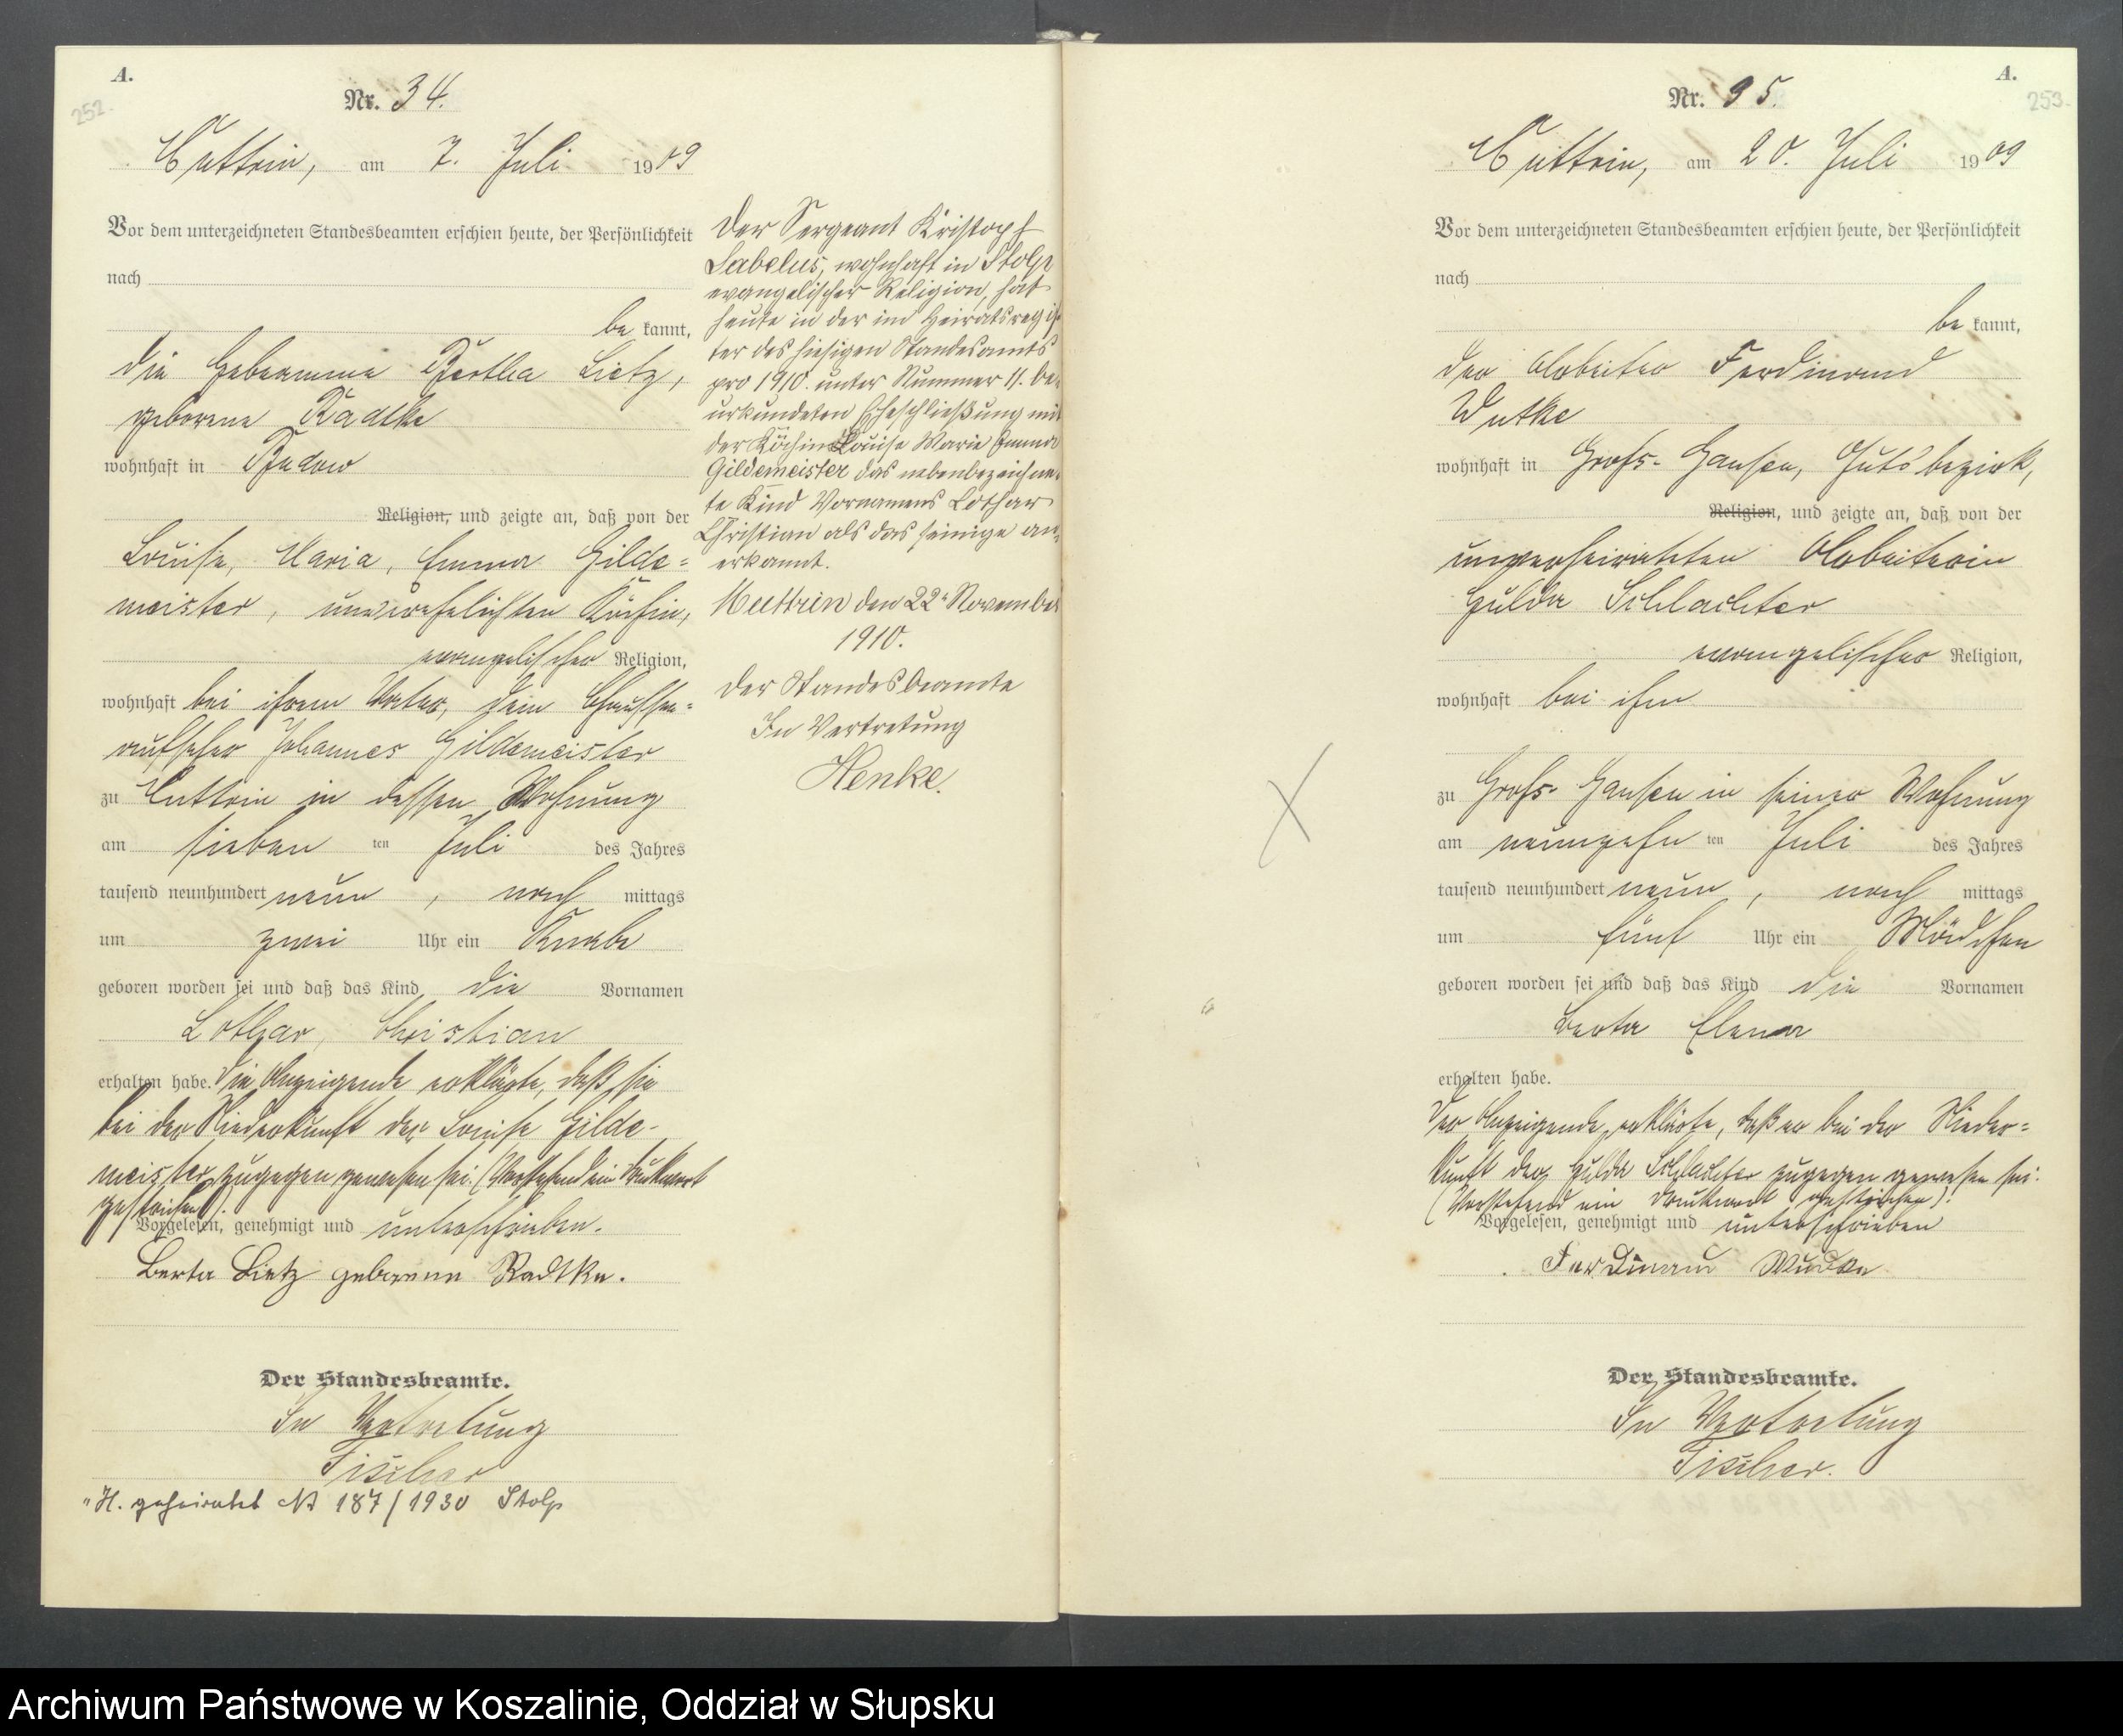 A.
252.
Nr. 34.
Muttrin, am 7. Juli 1909
Vor dem unterzeichneten Standesbeamten erschien heute, der Persönlichkeit
nach
be kannt,
die Hebeamme Bertha Lietz,
geborene Radtke
wohnhaft in Budow
Religion, und zeigte an, daß von der
Louise, Maria, Emma Gilde=
meister, unverehelichten Köchin,
evangelischer Religion,
wohnhaft bei ihrem Vater, dem Chaussee=
aufseher Johannes Gildemeister
zu Muttrin in dessen Wohnung
am sieben ten Juli des Jahres
tausend neunhundert neun, nach mittags
um zwei Uhr ein Knabe
geboren worden sei und daß das Kind die Vornamen
Lothar, Christian
erhalten habe. Die Anzeigende erklärte, daß sie
bei der Niederkunft der Louise Gilde-
meister zugegen gewesen sei. (Vorstehend ein Druckwort
gestrichen).
Vorgelesen, genehmigt und unterschrieben.
Berta Lietz geborene Radtke.
Der Standesbeamte.
In Vertretung
Fischer
"H. geheiratet Nr 187/1930 Stolp
Der Sergeant Kristopf
Labelus, wohnhaft in Stolp
evangelischer Religion, hat
heute in der im Heiratsregis-
ter des hiesigen Standesamts
pro 1910 unter Nummer 11. be-
urkundeten Eheschließung mit
der Köchin Louise Marie Emma
Gildemeister das nebenbezeichne-
te Kind Vornamens Lothar
Christian als das seinige an-
erkannt.
Muttrin den 22. November
1910.
Der Standesbeamte
In Vertretung
Henke.
A.
253.
Nr. 35.
Muttrin, am 20. Juli 1909
Vor dem unterzeichneten Standesbeamten erschien heute, der Persönlichkeit
nach
be kannt,
der Arbeiter Ferdinand
Wutke
wohnhaft in Groß-Gansen, Gutsbezirk,
Religion, und zeigte an, daß von der
unverheirateten Arbeiterin
Hulda Schlachter
evangelischer Religion,
wohnhaft bei ihm
zu Groß-Gansen in seiner Wohnung
am neunzehn ten Juli des Jahres
tausend neunhundert neun, nach mittags
um fünf Uhr ein Mädchen
geboren worden sei und daß das Kind die Vornamen
Berta
erhalten habe.
Der Anzeigende erklärte, daß er bei der Nieder=
kunft der Hulda Schlachter zugegen gewesen sei.
(Vorstehend ein Druckwort gestrichen).
Vorgelesen, genehmigt und unterschrieben
Ferdinand
Der Standesbeamte.
In Vertretung
Fischer.
Archiwum Państwowe w Koszalinie, Oddział w Słupsku